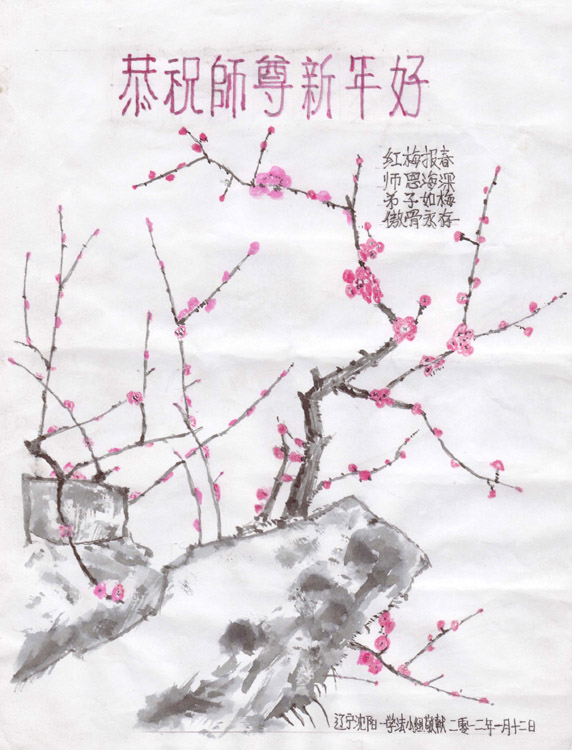 恭祝師尊新年好
红梅报春
师恩海深
弟子如梅
傲骨永存
辽宁沈阳一学法小组敬献 二零一二年一月十二日